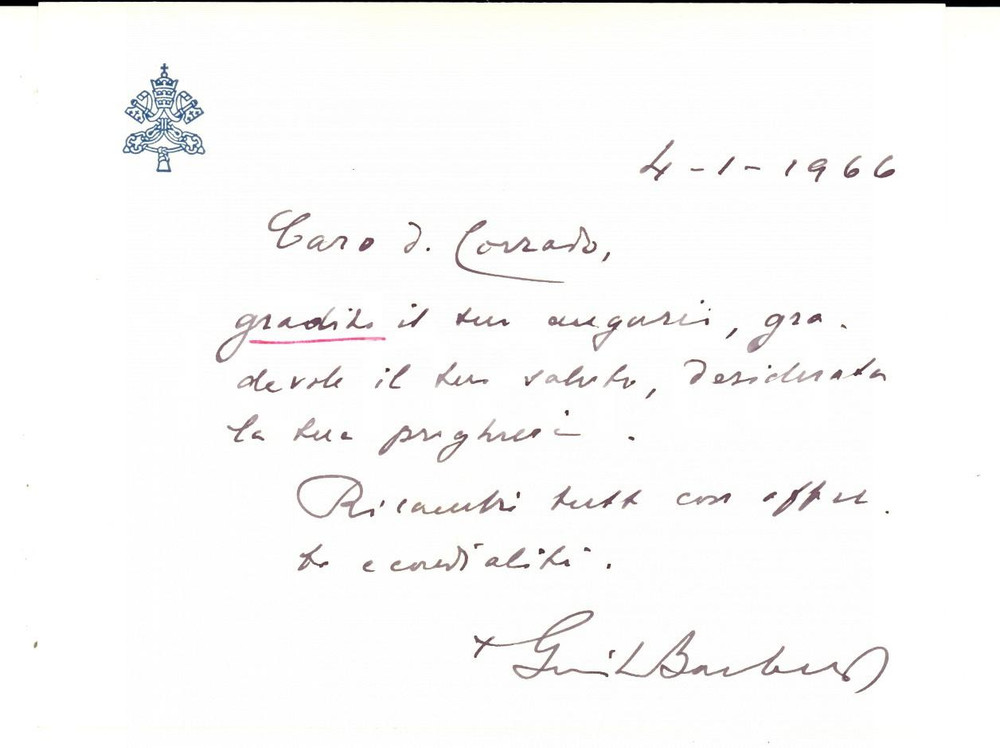 4-1-1966
Caro d. Corrado,
gradito il tuo augurio, gra-
devole il tuo saluto, desiderata
la tua preghiera.
Ricambio tutto con affet-
to e cordialità.
+ Guido Barbero